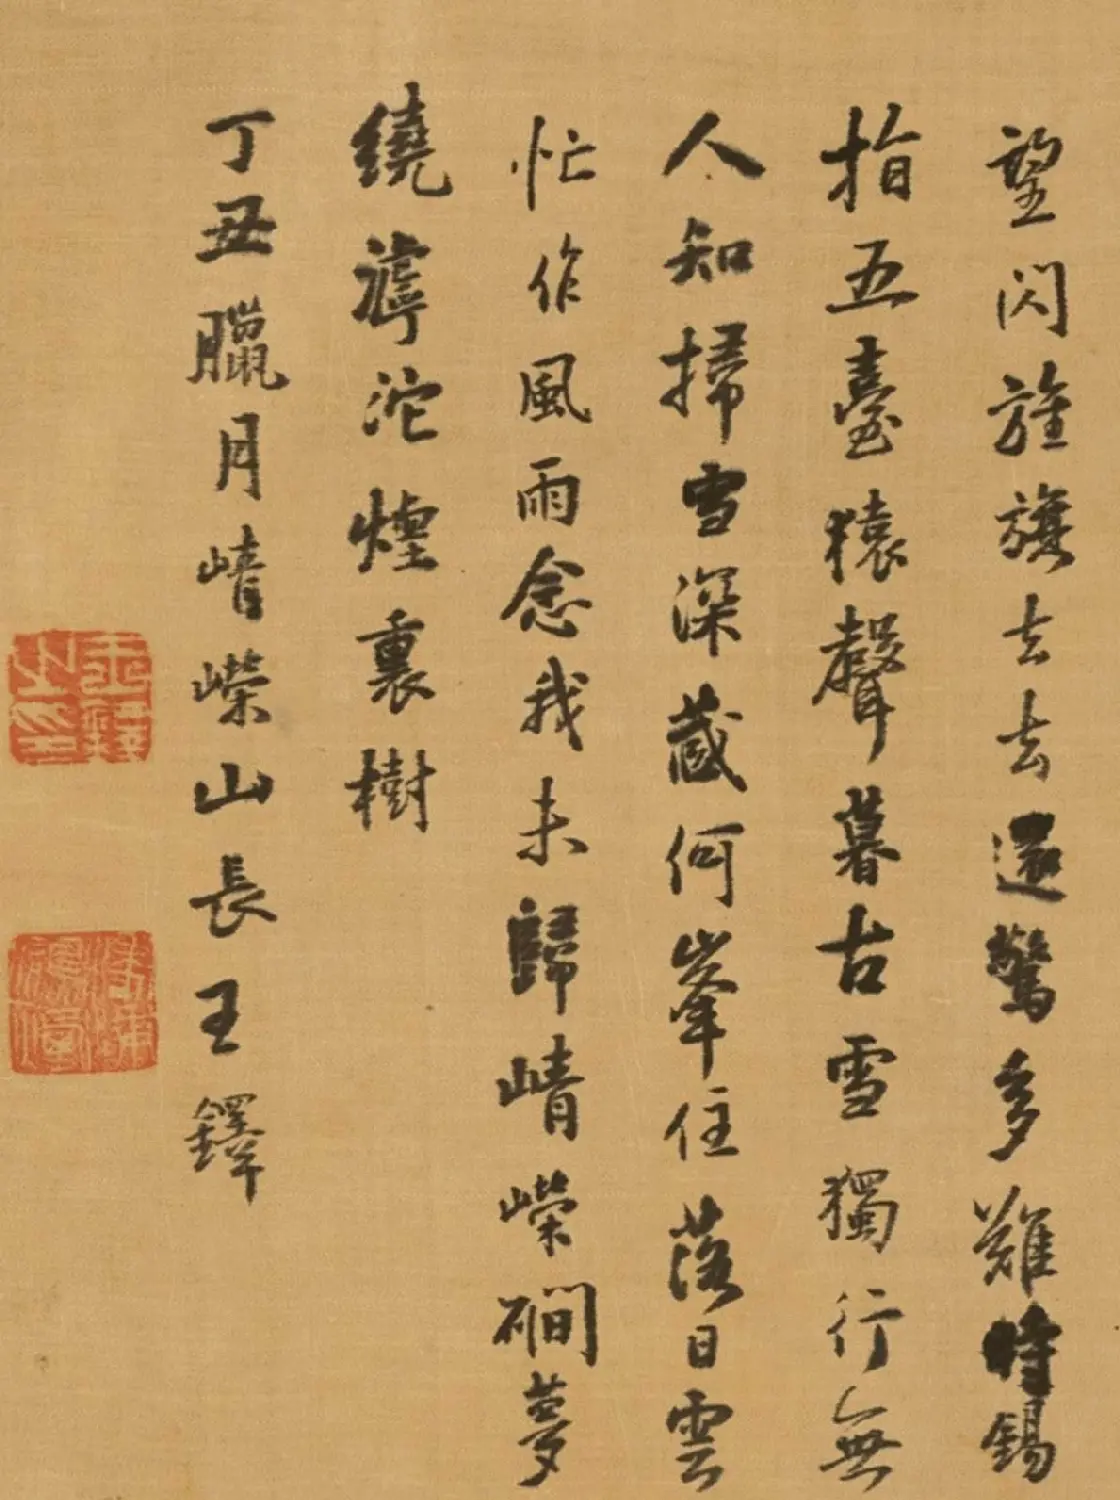 望閃旌旗去去還驚多難時錫
指五臺猿聲暮古雪獨行無
人知掃雪深藏何峯住落日雲
忙作風雨念我未歸崝嶸磵夢
繞滹沱煙裏樹
丁丑臘月崝嶸山長王鐸
王鐸之印